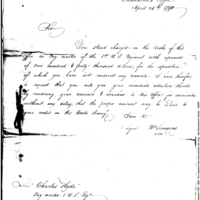 April 24th 1798
Sir
You stand charged on the Books of this
office as Pay master of the 1st U.S. Regiment with upwards
of one hundred & forty thousand dollars, for the expenditure
of which you have not rendered any accounts. I am therefore
to request that you will give your immediate attention towards
rendering your accounts & vouchers to this Office for
without any delay, that the proper amount may be
your credit on the Books thereof. I am Sir
signed Wm Simmons
Charles Hyde
Pay master 1 U.S. Regt.